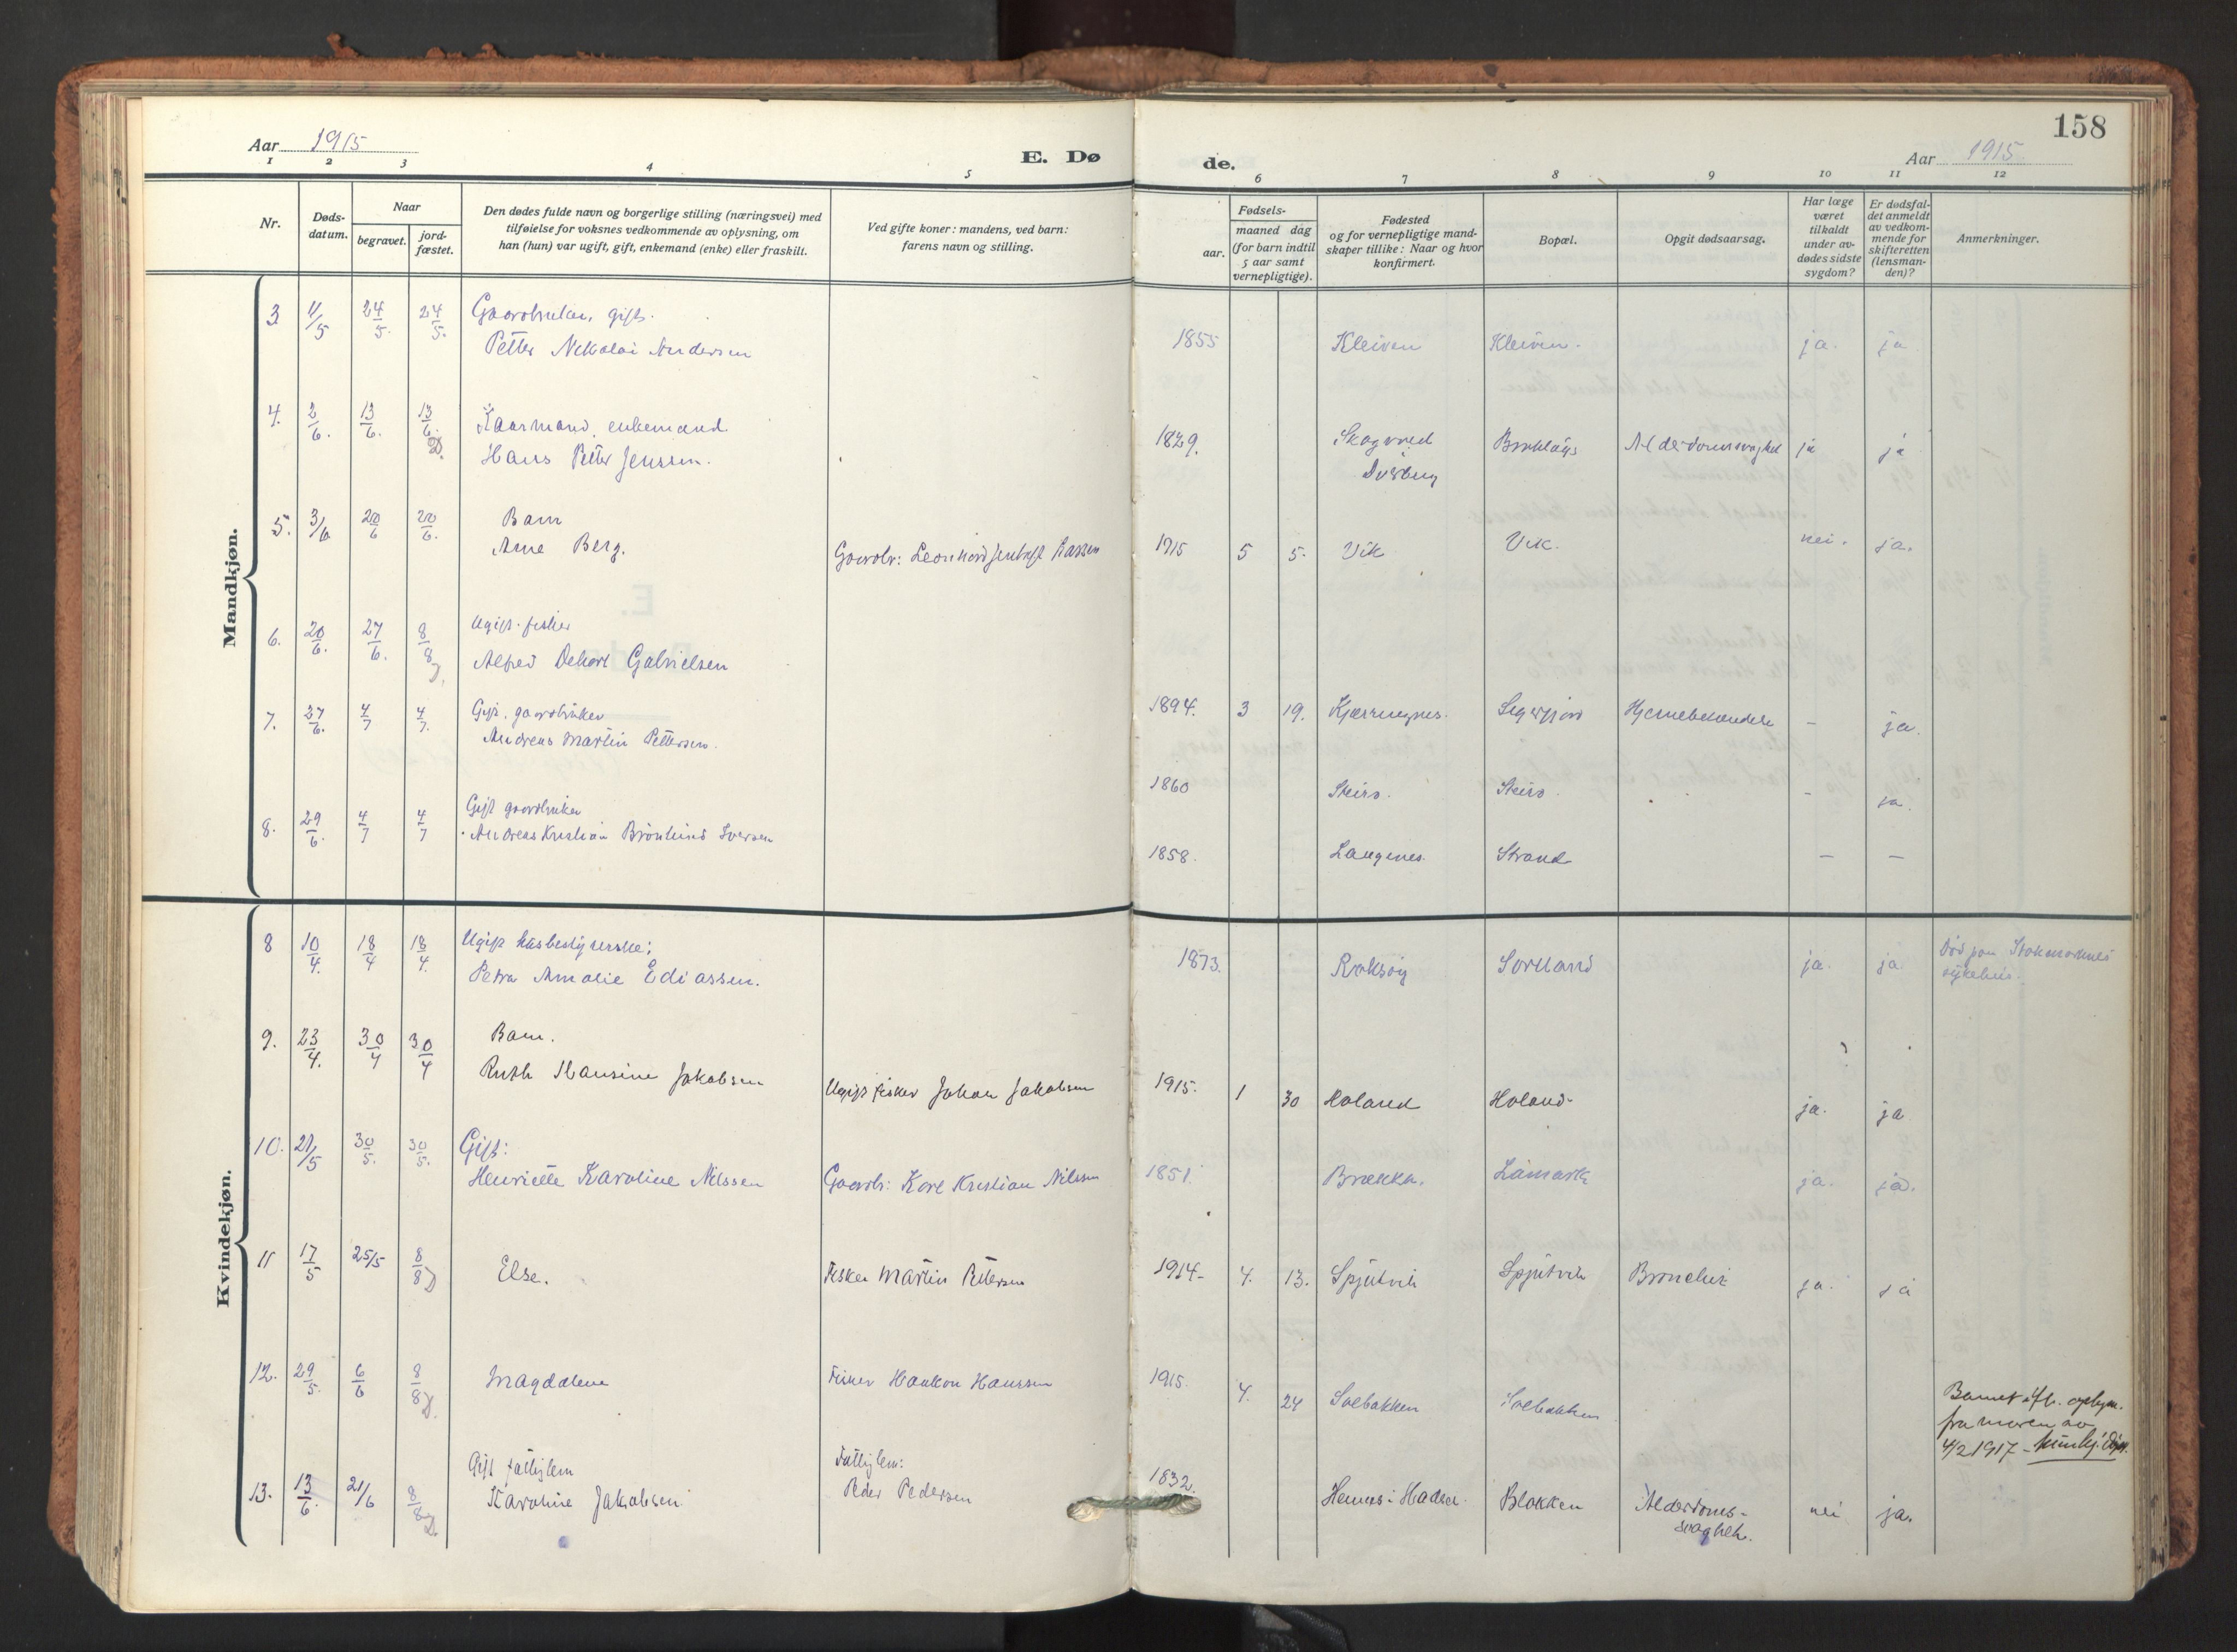 158
Aar 1915
E. Dø
de.
Aar 1915
1 2 3 4 5 6 7 8 9 10 11 12
Nr.
Døds-
datum.
Naar
begravet.
jord-
fæstet.
Den dødes fulde navn og borgerlige stilling (næringsvei) med
tilføielse for voksnes vedkommende av oplysning, om
han (hun) var ugift, gift, enkemand (enke) eller fraskilt.
Ved gifte koner: mandens, ved barn:
farens navn og stilling.
Fødsels-
aar.
maaned dag
(for barn indtil
5 aar samt
vernepligtige).
Fødested
og for vernepligtige mand-
skaper tillike: Naar og hvor
konfirmert.
Bopæl.
Opgit dødsaarsag.
Har læge
været
tilkaldt
under av-
dødes sidste
sygdom?
Er dødsfal-
det anmeldt
av vedkom-
mende for
skifteretten
(lensman-
den)?
Anmerkninger.
Mandkjøn.
3. 11/5 24/5. 24/5. Gaardbruker, gift.
Petter Nikolai Andersen
1855 Kleiven Kleiven. ja. ja
4. 2/6. 13/6. 13/6. D. Kaarmand, enkemand
Hans Petter Jenssen.
1829. Dverberg Alderdomssvaghet ja ja
5. 3/6 20/6 20/6. Barn
Arne Berg.
Gaardbr:
1915 5 5. Vik Vik. nei. ja.
6. 20/6. 27/6. 8/8 D. Ugift fisker
Alfred Gabrielsen
1894. 3 19. ja.
7. 27/6. 4/7 4/7. Gift. gaardbruker
Andreas Martin Pettersen.
1860 Steiro. Steiro. - ja.
8. 29/6. 4/7 4/7 Gift gaardbruker
Andreas Kristian Brönlund Iversen
1858. Langenes. Strand - -
Kvindekjøn.
8 10/4. 18/4 18/4. Ugift husbestyrerske;
Petra Amalie Ediassen.
1873. Roksøy Sortland ja. ja Død paa Stokmarknes
sykehus.
9. 23/4. 30/4 30/4 Barn.
Ruth Hansine Jakobsen
Ugift fisker Johan Jakobsen
1915. 1 30 Holand Holand ja. ja
10. 21/5 30/5. 30/5. Gift:
Henriette Karoline Nilssen
Gaardbr: Karl Kristian Nilssen
1851. Brække. Lamark ja. ja.
11 17/5 25/5 8/8 D Else.
Fisker Martin Pettersen
1914 4. 13. Spjutvik Spjutvik ja. ja
12. 29/5. 6/6 8/8 D. Magdalena
Fisker Haakon Hanssen
1915. 4. 24 Solbakken Solbakken
Barnet
fra moren av
4/2 1917
13. 13/6. 21/6 8/8 D. Gift fattiglem
Karoline Jakobsen
Fattiglem:
Peder Pedersen
1832. Hennes i Hadsel. Blokken Alderdoms-
svaghet. nei ja.